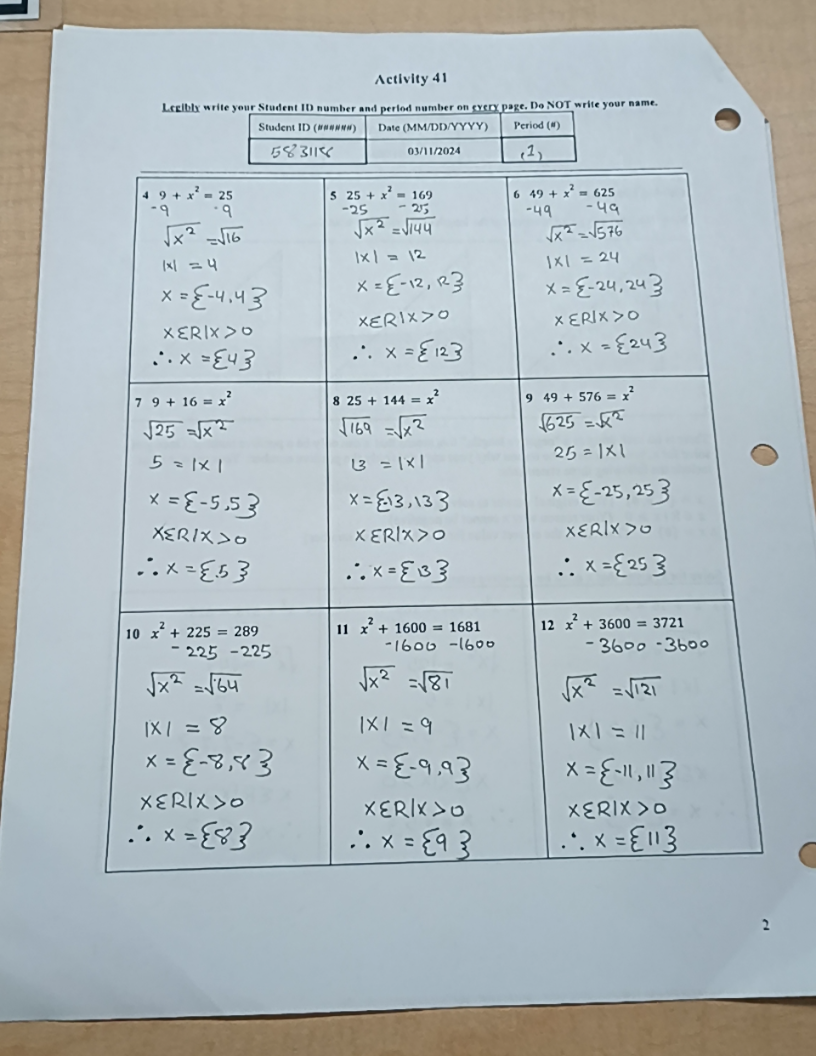 Activity 41
Legibly write your Student ID number and period number on every page. Do NOT write your name.
Student ID (######) Date (MM/DD/YYYY) Period (#)
583118 03/11/2024 (1)
4 9 + x² = 25
-9 -9
√x² = √16
|x| = 4
x = {-4,4}
xεR|x>0
∴ x = {4}
5 25 + x² = 169
-25 -25
√x² = √144
|x| = 12
x = {-12, 12}
xεR|x>0
∴ x = {12}
6 49 + x² = 625
-49 -49
√x² = √576
|x| = 24
x = {-24, 24}
xεR|x>0
∴ x = {24}
7 9 + 16 = x²
√25 = √x²
5 = |x|
x = {-5,5}
xεR|x>0
∴ x = {5}
8 25 + 144 = x²
√169 = √x²
13 = |x|
x = {-13, 13}
xεR|x>0
∴ x = {13}
9 49 + 576 = x²
√625 = √x²
25 = |x|
x = {-25, 25}
xεR|x>0
∴ x = {25}
10 x² + 225 = 289
-225 -225
√x² = √64
|x| = 8
x = {-8,8}
xεR|x>0
∴ x = {8}
11 x² + 1600 = 1681
-1600 -1600
√x² = √81
|x| = 9
x = {-9,9}
xεR|x>0
∴ x = {9}
12 x² + 3600 = 3721
-3600 -3600
√x² = √121
|x| = 11
x = {-11, 11}
xεR|x>0
∴ x = {11}
2